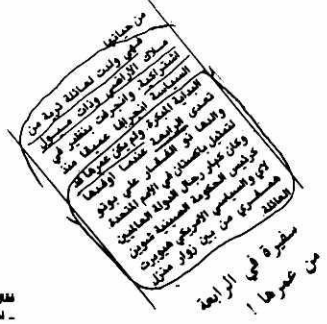 من حياتها
فهي ولدت لعائلة ثرية من
ملاك الأراضي وذات ميول
اشتراكية وانجرفت بنظير في
السياسة انجرافا عميقا منذ
البداية المبكرة ولم يكن عمرها قد
تعدى الرابعة عندما أوفدها
والدها ذو الفقار علي بوتو
لتمثيل باكستان في الأمم المتحدة
وكان كبار رجال الدولة العالميين
كرئيس الحكومة الصينية شوين
لاي والسياسي الأمريكي هيوبرت
همفري من بين زوار منزل
العائلة
سفيرة في الرابعة
من عمرها !